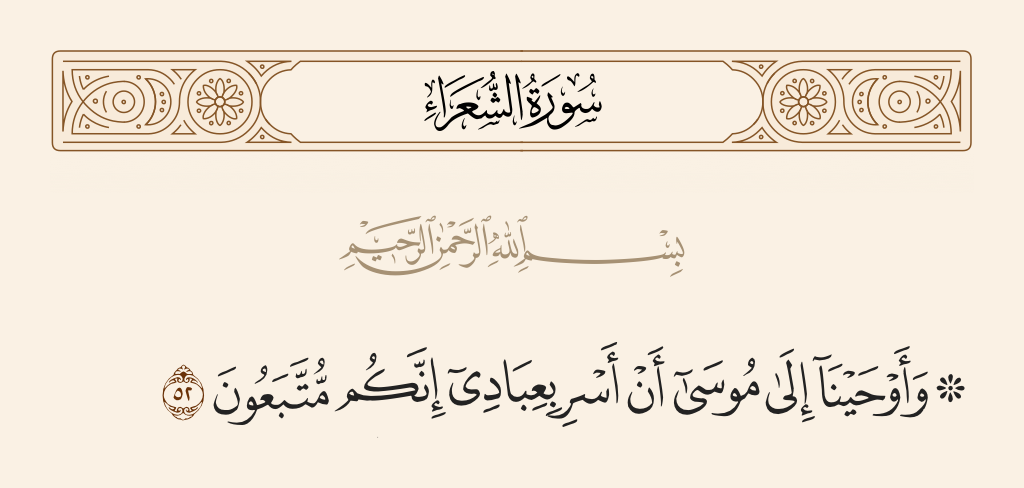 سُورَةُ الشُّعَرَاءِ
بِسْمِ ٱللَّهِ ٱلرَّحْمَٰنِ ٱلرَّحِيمِ
۞ وَأَوْحَيْنَآ إِلَىٰ مُوسَىٰٓ أَنْ أَسْرِ بِعِبَادِىٓ إِنَّكُم مُّتَّبَعُونَ ٥٢